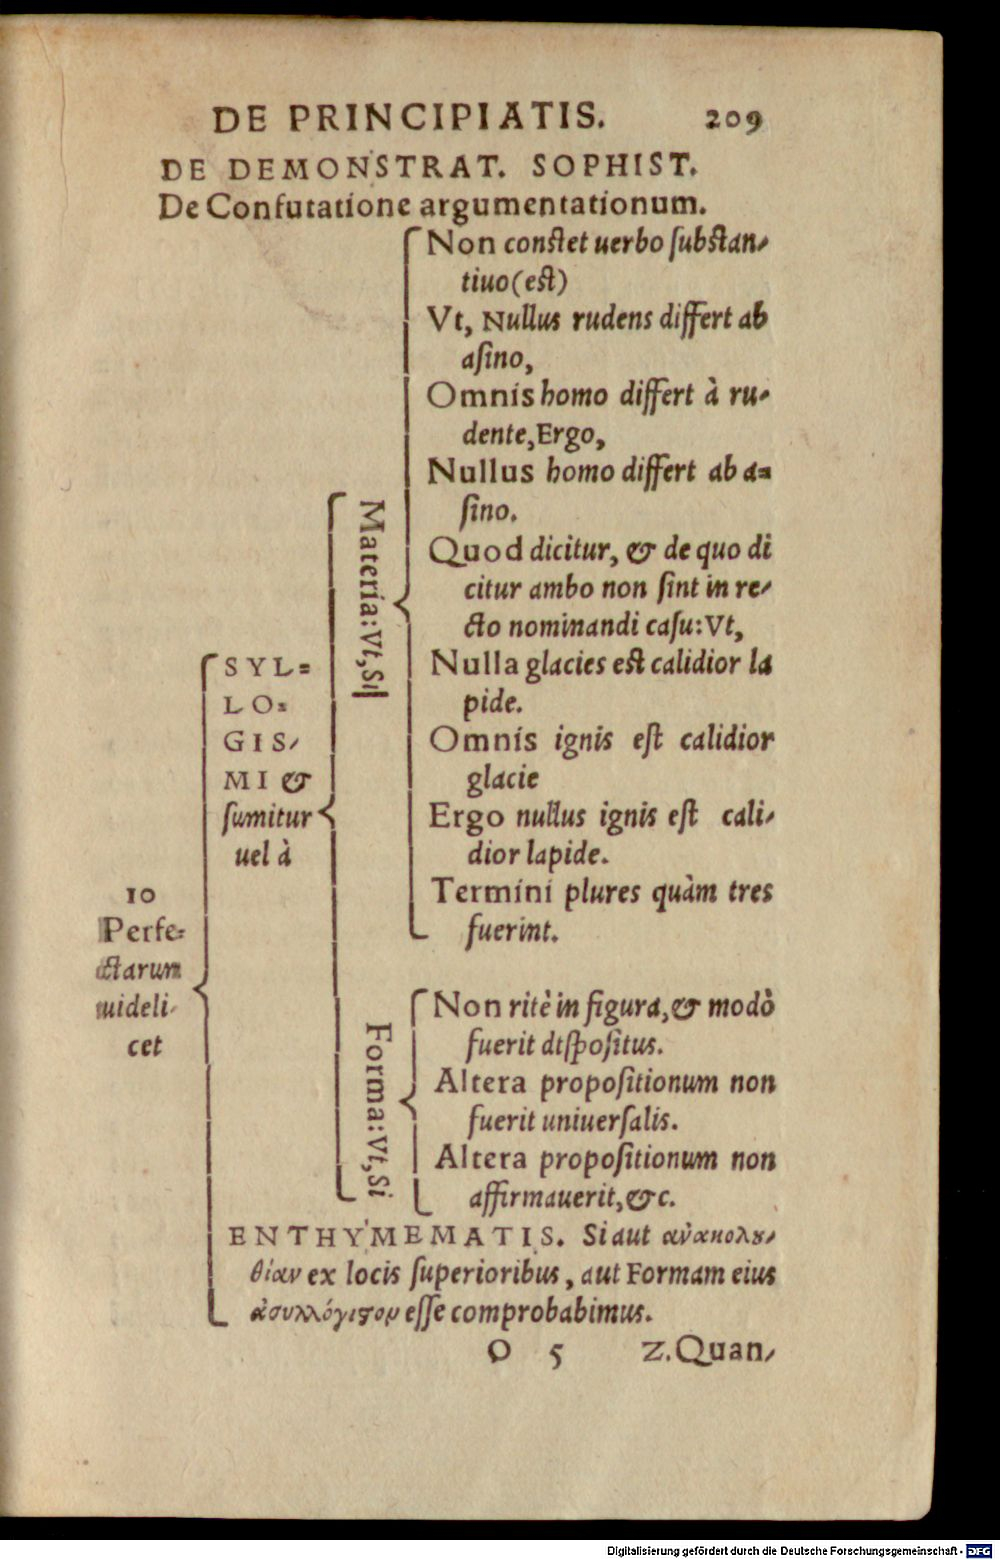 DE PRINCIPIATIS. 209
DE DEMONSTRAT. SOPHIST.
De Confutatione argumentationum.
10
Perfe=
ctarum
uideli-
cet
SYL=
LO=
GIS-
MI &
sumitur
uel à
Materia: Vt, Si
Non constet uerbo substan-
tiuo (est)
Vt, Nullus rudens differt ab
asino,
Omnis homo differt à ru-
dente, Ergo,
Nullus homo differt ab a=
sino.
Quod dicitur, & de quo di
citur ambo non sint in re-
cto nominandi casu: Vt,
Nulla glacies est calidior la
pide.
Omnis ignis est calidior
glacie
Ergo nullus ignis est cali-
dior lapide.
Termini plures quàm tres
fuerint.
Forma: Vt, Si
Non ritè in figura, & modò
fuerit dispositus.
Altera propositionum non
fuerit uniuersalis.
Altera propositionum non
affirmauerit, &c.
ENTHYMEMATIS. Si aut ανακολȣ-
θίαν ex locis superioribus, aut Formam eius
ἀσυλλόγιϛον esse comprobabimus.
O 5 2. Quan-
Digitalisierung gefördert durch die Deutsche Forschungsgemeinschaft - DFG